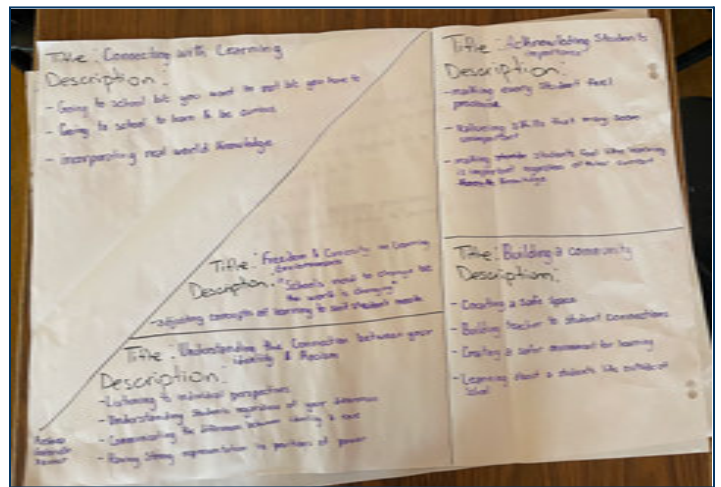 Title: Connecting with Learning
Description:
- Going to school b/c you want to not b/c you have to
- Going to school to learn & be curious
- incorporating real world knowledge
Title: Freedom & Curiosity in Learning
Environments
Description: "Schools need to change b/c
the world is changing"
- adjusting concepts of learning to suit student needs
Title: Understanding the Connection between your
identity & Racism
Description:
- Listening to individual perspectives
- Understanding students regardless of your differences
- Communicating the difference between identity & race
- Having strong representation in positions of power
Title: Acknowledging Students
importance
Description:
- making every student feel
- Valueing skills that may seem
unimportant
- making students feel like learning
is important regardless of their current
knowledge
Title: Building a community
Description:
- Creating a safe space
- Building teacher to student connections
- Creating a safer environment for learning
- Learning about a students life outside of
school